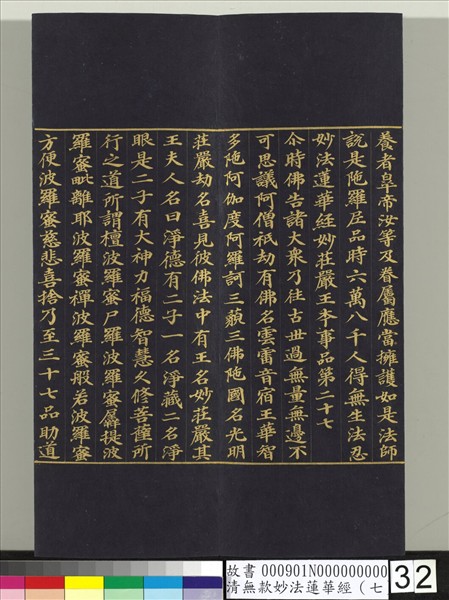 養者皐帝汝等及眷屬應當擁護如是法師
說是陁羅尼品時六萬八千人得無生法忍
妙法蓮華經妙莊嚴王本事品第二十七
尒時佛告諸大衆乃往古世過無量無邊不
可思議阿僧祇劫有佛名雲雷音宿王華智
多陁阿伽度阿羅訶三藐三佛陁國名光明
莊嚴劫名喜見彼佛法中有王名妙莊嚴其
王夫人名曰淨德有二子一名淨藏二名淨
眼是二子有大神力福德智慧久修菩薩所
行之道所謂檀波羅蜜尸羅波羅蜜羼提波
羅蜜毗離耶波羅蜜禪波羅蜜般若波羅蜜
方便波羅蜜慈悲喜捨乃至三十七品助道
故書 000901N000000000
清無款妙法蓮華經（七
32